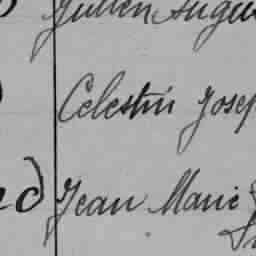 Julien Augu
Celestin Josep
Jean Marie